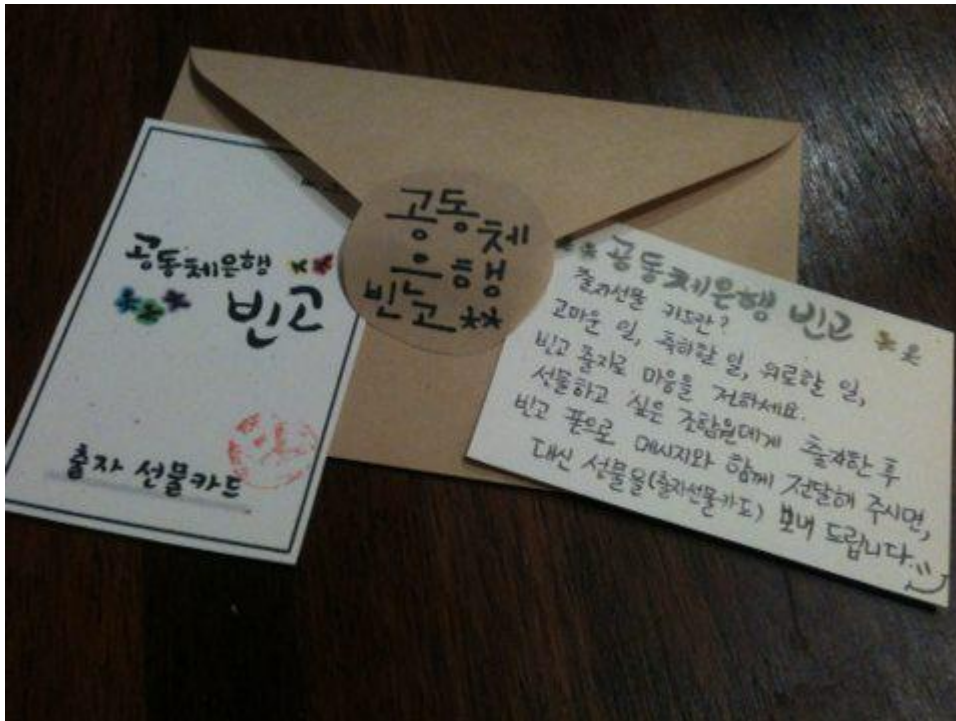 공동체은행
빈고
출자 선물카드
공동체
은행
빈고
공동체은행 빈고
출자선물 카드란?
고마운 일, 축하할 일, 위로할 일,
빈고 출자로 마음을 전하세요.
선물하고 싶은 조합원에게 출자한 후
빈고 폰으로 메시지와 함께 전달해 주시면,
대신 선물을(출자선물카드) 보내 드립니다.